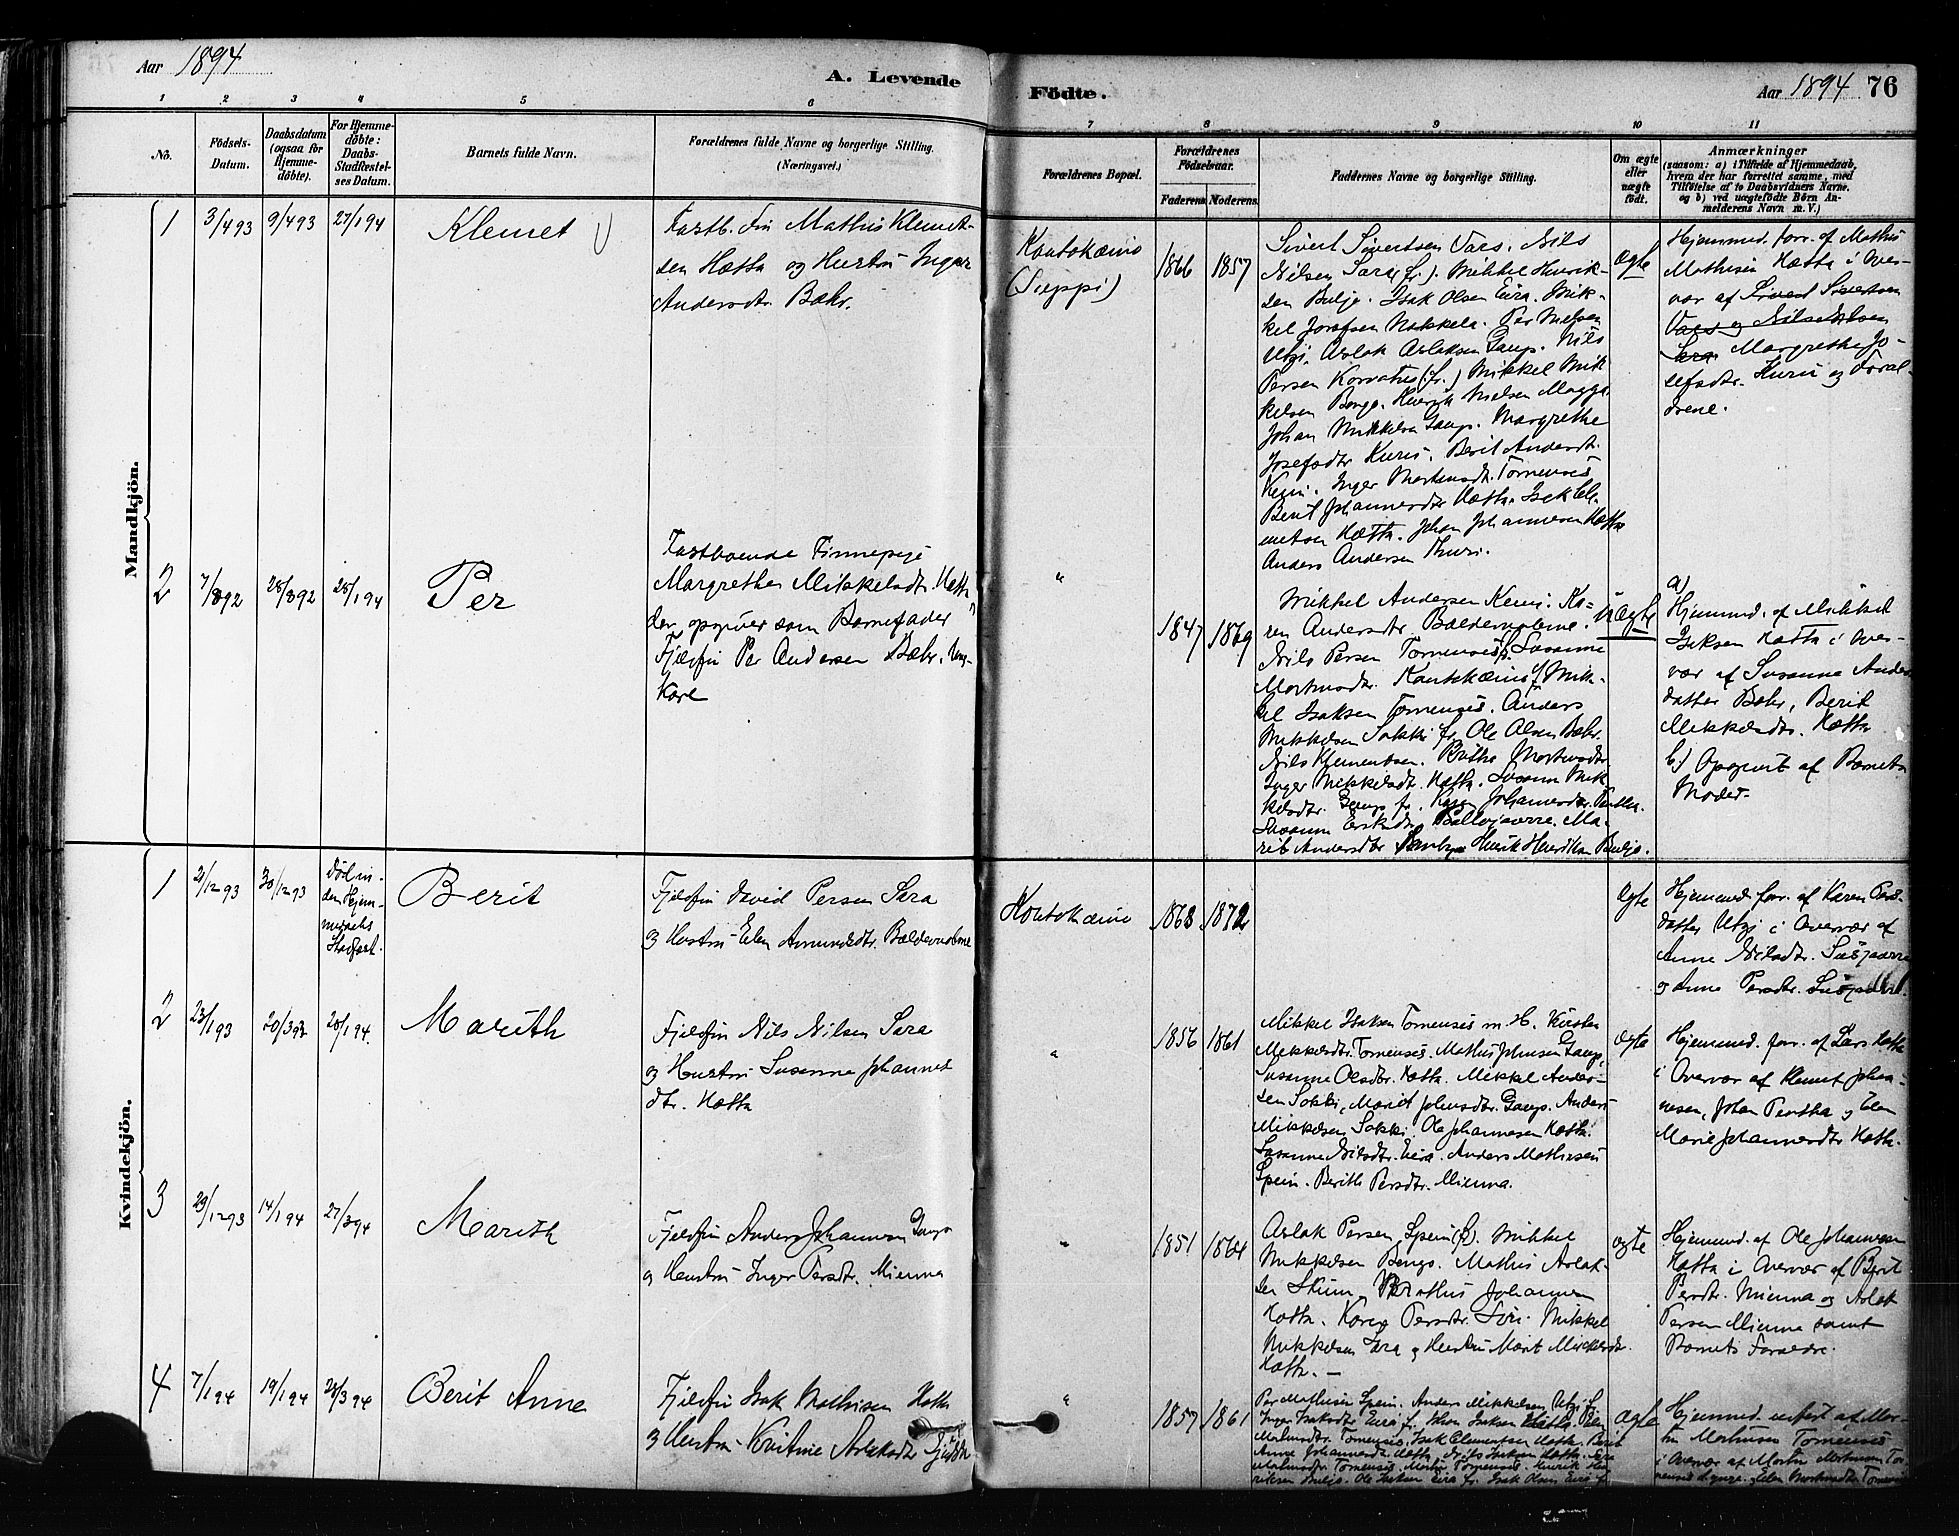 Aar 1894
A. Levende
Födte.
Aar 1894 76
1 2 3 4 5 6 7 8 9 10 11
No.
Födsels-
Datum.
Daabsdatum
(ogsaa for
Hjemme-
döbte).
For Hjemme-
döbte:
Daabs-
Stadfæstel-
ses Datum.
Barnets fulde Navn.
Forældrenes fulde Navne og borgerlige Stilling.
(Næringsvei.)
Forældrenes Bopæl.
Forældrenes
Födselsaar.
Faderens. Moderens.
Faddernes Navne og borgerlige Stilling.
Om ægte
eller
uægte
födt.
Anmærkninger
(saasom: a) i Tilfælde af Hjemmedaab,
hvem der har forrettet samme, med
Tilföielse af to Daabsvidners Navne.
og b) ved uægtefödte Börn An-
melderens Navn m. V.)
Mandkjön.
1
3/4 93
9/4 93
27/1 94
Klemet
Fastb. Fin Mathis Klemet-
sen Hætta og Hustru Inger
Andersdtr. Bær.
Kautokeino
(Sieppi)
1866 1857
Sivert Sivertsen Vars. Nils
Nilsen Sara (fr.). Mikkel Henrik-
sen Buljo. Isak Olsen Eira. Mik-
kel Josefsen Nækkela. Per Nielsen
Utzi. Aslak Aslaksen Gaup. Nils
Persen Korvatus (fr.) Mikkel Mik-
kelsen Bongo. Henrik Nielsen Magga.
Johan Mikkelsen Gaup. Margrethe
Josefsdtr Kuru. Berit Andersdt.
Kemi. Inger Mortensdt. Tornensis
Berit Johannesdtr Hætta. Isak Cle-
metsen Hætta. Johan Johannesen Hætta
Anders Andersen Thuri.
ægte
Hjemmed. forr. af Mathis
Mathisen Hætta i Over-
vær af Sivert Sivertsen
Vars og Nils Nilsen
Sara Margrethe Jo-
sefsdtr. Kuru og Foræl-
drene.
2
7/8 92
28/8 92
28/1 94
Per
Fastboende Finnepige
Margrethe Mikkelsdt. Hætta
der opgiver som Barnefader
Fjeldfin Per Andersen Bær. Ung-
karl
"
1847 1869
Mikkel Andersen Kemi. Ka-
ren Andersdtr. Bældevuobme.
Nils Persen Tornensis f. Susanne
Mortensdtr. Kautokæino f. Mik-
kel Isaksen Tornensis. Anders
Mikkelsen Sokki fr. Ole Olsen Bær.
Nils Klemetsen. Mortensdtr.
Inger Mikkelsdt. Hætta. Susanna Mik-
kelsdtr. Gaup fr. Karen Johannesdtr.
Susanne
rit Andersdtr Henrik Henriksen Buljo.
uægte
a)
Hjemmed. af Mikkel
Isaksen Hætta i Over-
vær af Susanne Anders
datter Bær, Berit
Mikkelsdtr. Hætta
b) Opgivet af Barnets
Moder.
Kvindekjön.
1
21/12 93
30/12 93
Död in-
den Hjem-
medaabs
Stadfæst.
Berit
Fjeldfin David Persen Sara
og Hustru Elen Amundsdtr. Bældevuobme
Kautokæino
1868 1872
ægte
Hjemmed. forr. af Karen Pers-
datter Utzi i Overvær af
Anne Nilsdtr.
og Anne Persdtr.
2
23/1 93
20/3 93
28/1 94.
Marith
Fjeldfin Nils Nilsen Sara
og Hustru Susanne Johannes
dtr. Hætta
"
1856 1861
Mikkel Isaksen Tornensis m. H. Kirsten
Mikkelsdtr. Tornensis. Mathis Johnsen Gaup,
Susanne Olsdtr. Hætta. Mikkel Ander-
sen Sokki, Marit Johnsdtr. Gaup. Anders
Mikkelsen Sokki. Ole Johannesen Hætta.
Susanne Nilsdtr. Eira. Anders Mathisen
Spein. Berith Persdtr. Mienna.
ægte
Hjemmed. forr. af Lars Hætta
i Overvær af Klemet Johan-
nesen, Johan Pentha og Elen
Marie Johannesdtr Hætta.
3
29/12 93
14/1 94
27/3 94
Marith
Fjeldfin Anders Johannesen Gaup
og Hustru Inger Persdtr. Mienna
"
1851 1864
Aslak Persen Spein (fr). Mikkel
Mikkelsen Bongo. Mathis Aslak-
sen Skum, Mathis Johannesen
Hætta. Karen Persdtr. Siri. Mikkel
Mikkelsen Sara og Hustru Marit Mikkelsdt.
Hætta. —
ægte
Hjemmed. af Ole Johannesen
Hætta i Overvær af Berit
Persdtr. Mienna og Aslak
Persen Mienna samt
Barnets Forældre.
4
7/1 94
19/1 94
28/3 94
Berit Anne
Fjeldfin Isak Mathisen Hætta
og Hustru Kristine Aslaksdtr
"
1857 1861
Per Mathisen Spein. Anders Mikkelsen Utzi fr.
Inger Isaksdtr Eira fr. Isaksen Hætta. Elen
Mortensdtr. Tornensis. Isak Clementsen Hætta. Berit
Anne Johannesdt Hætta Nils Isaksen Hætta.
Tornensis. Morten Tornensis. Henrik Hen-
riksen Buljo. Ole Isaksen Eira fr. Isak Olsen Eira fr
ægte
Hjemmed. udført af Mor-
ten Mathisen Tornensis
i Overvær af Morten Mortensen Tor-
nensis d. yngre. og Elen Mortensdtr Tornensis